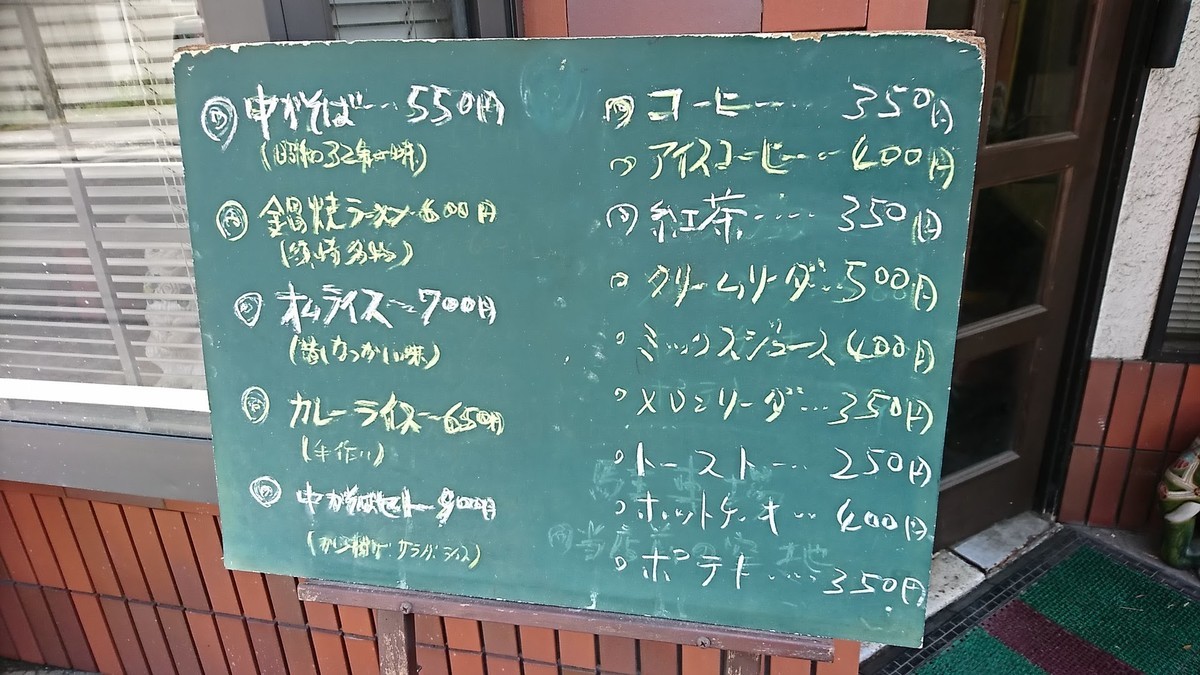 中かそば…550円
(昭和32年の味)
鍋焼ラーメン600円
(須崎名物)
オムライス〜700円
(昔なつかしい味)
カレーライス〜650円
(手作り)
中かそばセット900円
(から揚げ サラダ ライス)
コーヒー……350円
アイスコーヒー…400円
紅茶……350円
クリームソーダ…500円
ミックスジュース 400円
メロンソーダ…350円
トースト……250円
ホットケーキ…400円
ポテト……350円